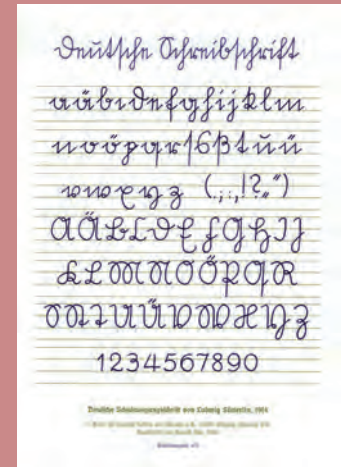 Deutsche Schreibschrift
a ä b c d e f g h i j k l m
n o ö p q r ſ s ß t u ü
v w x y z ( , ; . , ! ? „ “ )
A Ä B C D E F G H I J
K L M N O Ö P Q R
S St T U Ü V W X Y Z
1 2 3 4 5 6 7 8 9 0
Deutsche Schulausgangsschrift von Ludwig Sütterlin, 1914